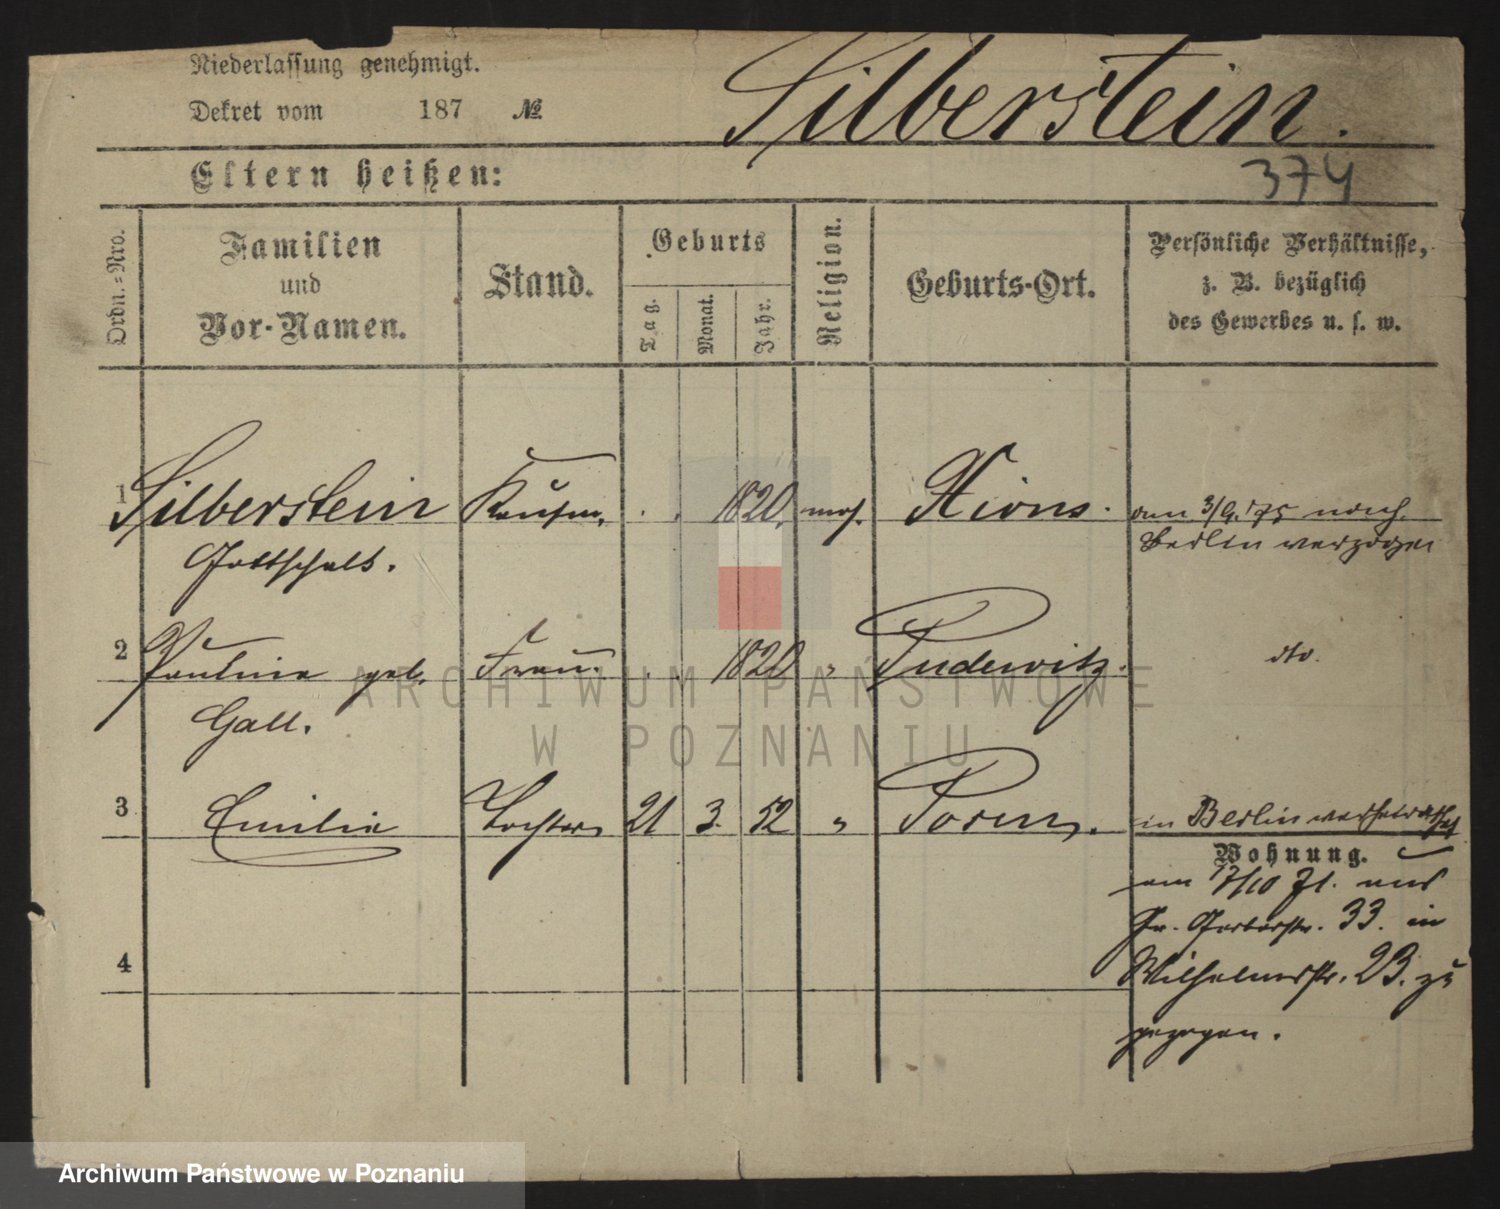 Niederlassung genehmigt.
Dekret vom 187 №
Silberstein.
374
Eltern heißen:
Ordn.-Nro.
Familien
und
Vor-Namen.
Stand.
Geburts
Tag.
Monat.
Jahr.
Religion.
Geburts-Ort.
Persönliche Verhältnisse,
z. B. bezüglich
des Gewerbes u. s. w.
1 Silberstein Kaufm. 1820. mos. Xions. am 3/9. 75 nach
Gottschalk. Berlin verzogen
2 Pauline geb. Frau. 1820 " Pudewitz. dto.
Gall.
3 Emilie Tochter 21 3. 52 " Posen. in Berlin verheirathet
Wohnung.
am 17/10 71. aus
Gr. Gerberstr. 33. in
4 Wilhelmsstr. 23. zu
gezogen.
ARCHIWUM PAŃSTWOWE
W POZNANIU
Archiwum Państwowe w Poznaniu